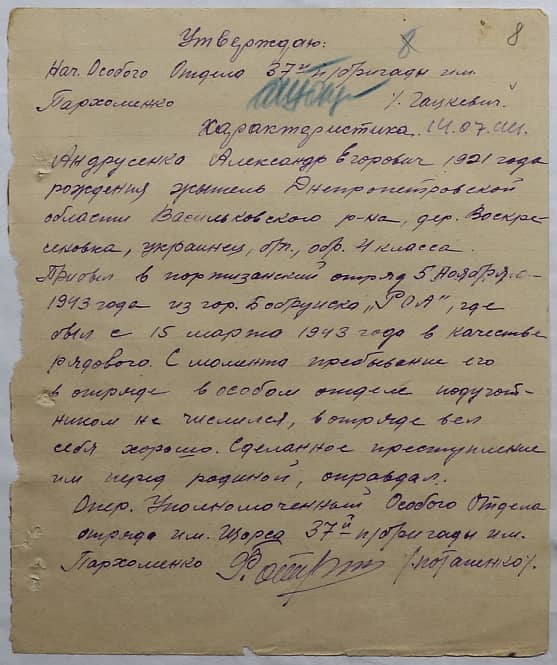 8 8
Утверждаю:
Нач. Особого Отдела 37й п/бригады им.
Пархоменко /. Гацкевич.
Характеристика. 14.07.44.
Андрусенко Александр Егорович 1921 года
рождения житель Днепропетровской
области Васильковского р-на, дер. Воскре-
сеновка, украинец, б/п., обр. 4 класса.
Прибыл в портизанский отряд 5 Ноября
1943 года из гор. Бобруйска „РОА", где
был с 15 марта 1943 года в качестве
рядового. С момента пребывание его
в отряде в особом отделе подучот-
ником не числился, в отряде вел
себя хорошо. Сделанное преступление
им перед родиной, оправдал.
Опер. Уполномоченный Особого Отдела
отряда им. Щорса 37й п/бригады им.
Пархоменко /.Потапенко/.